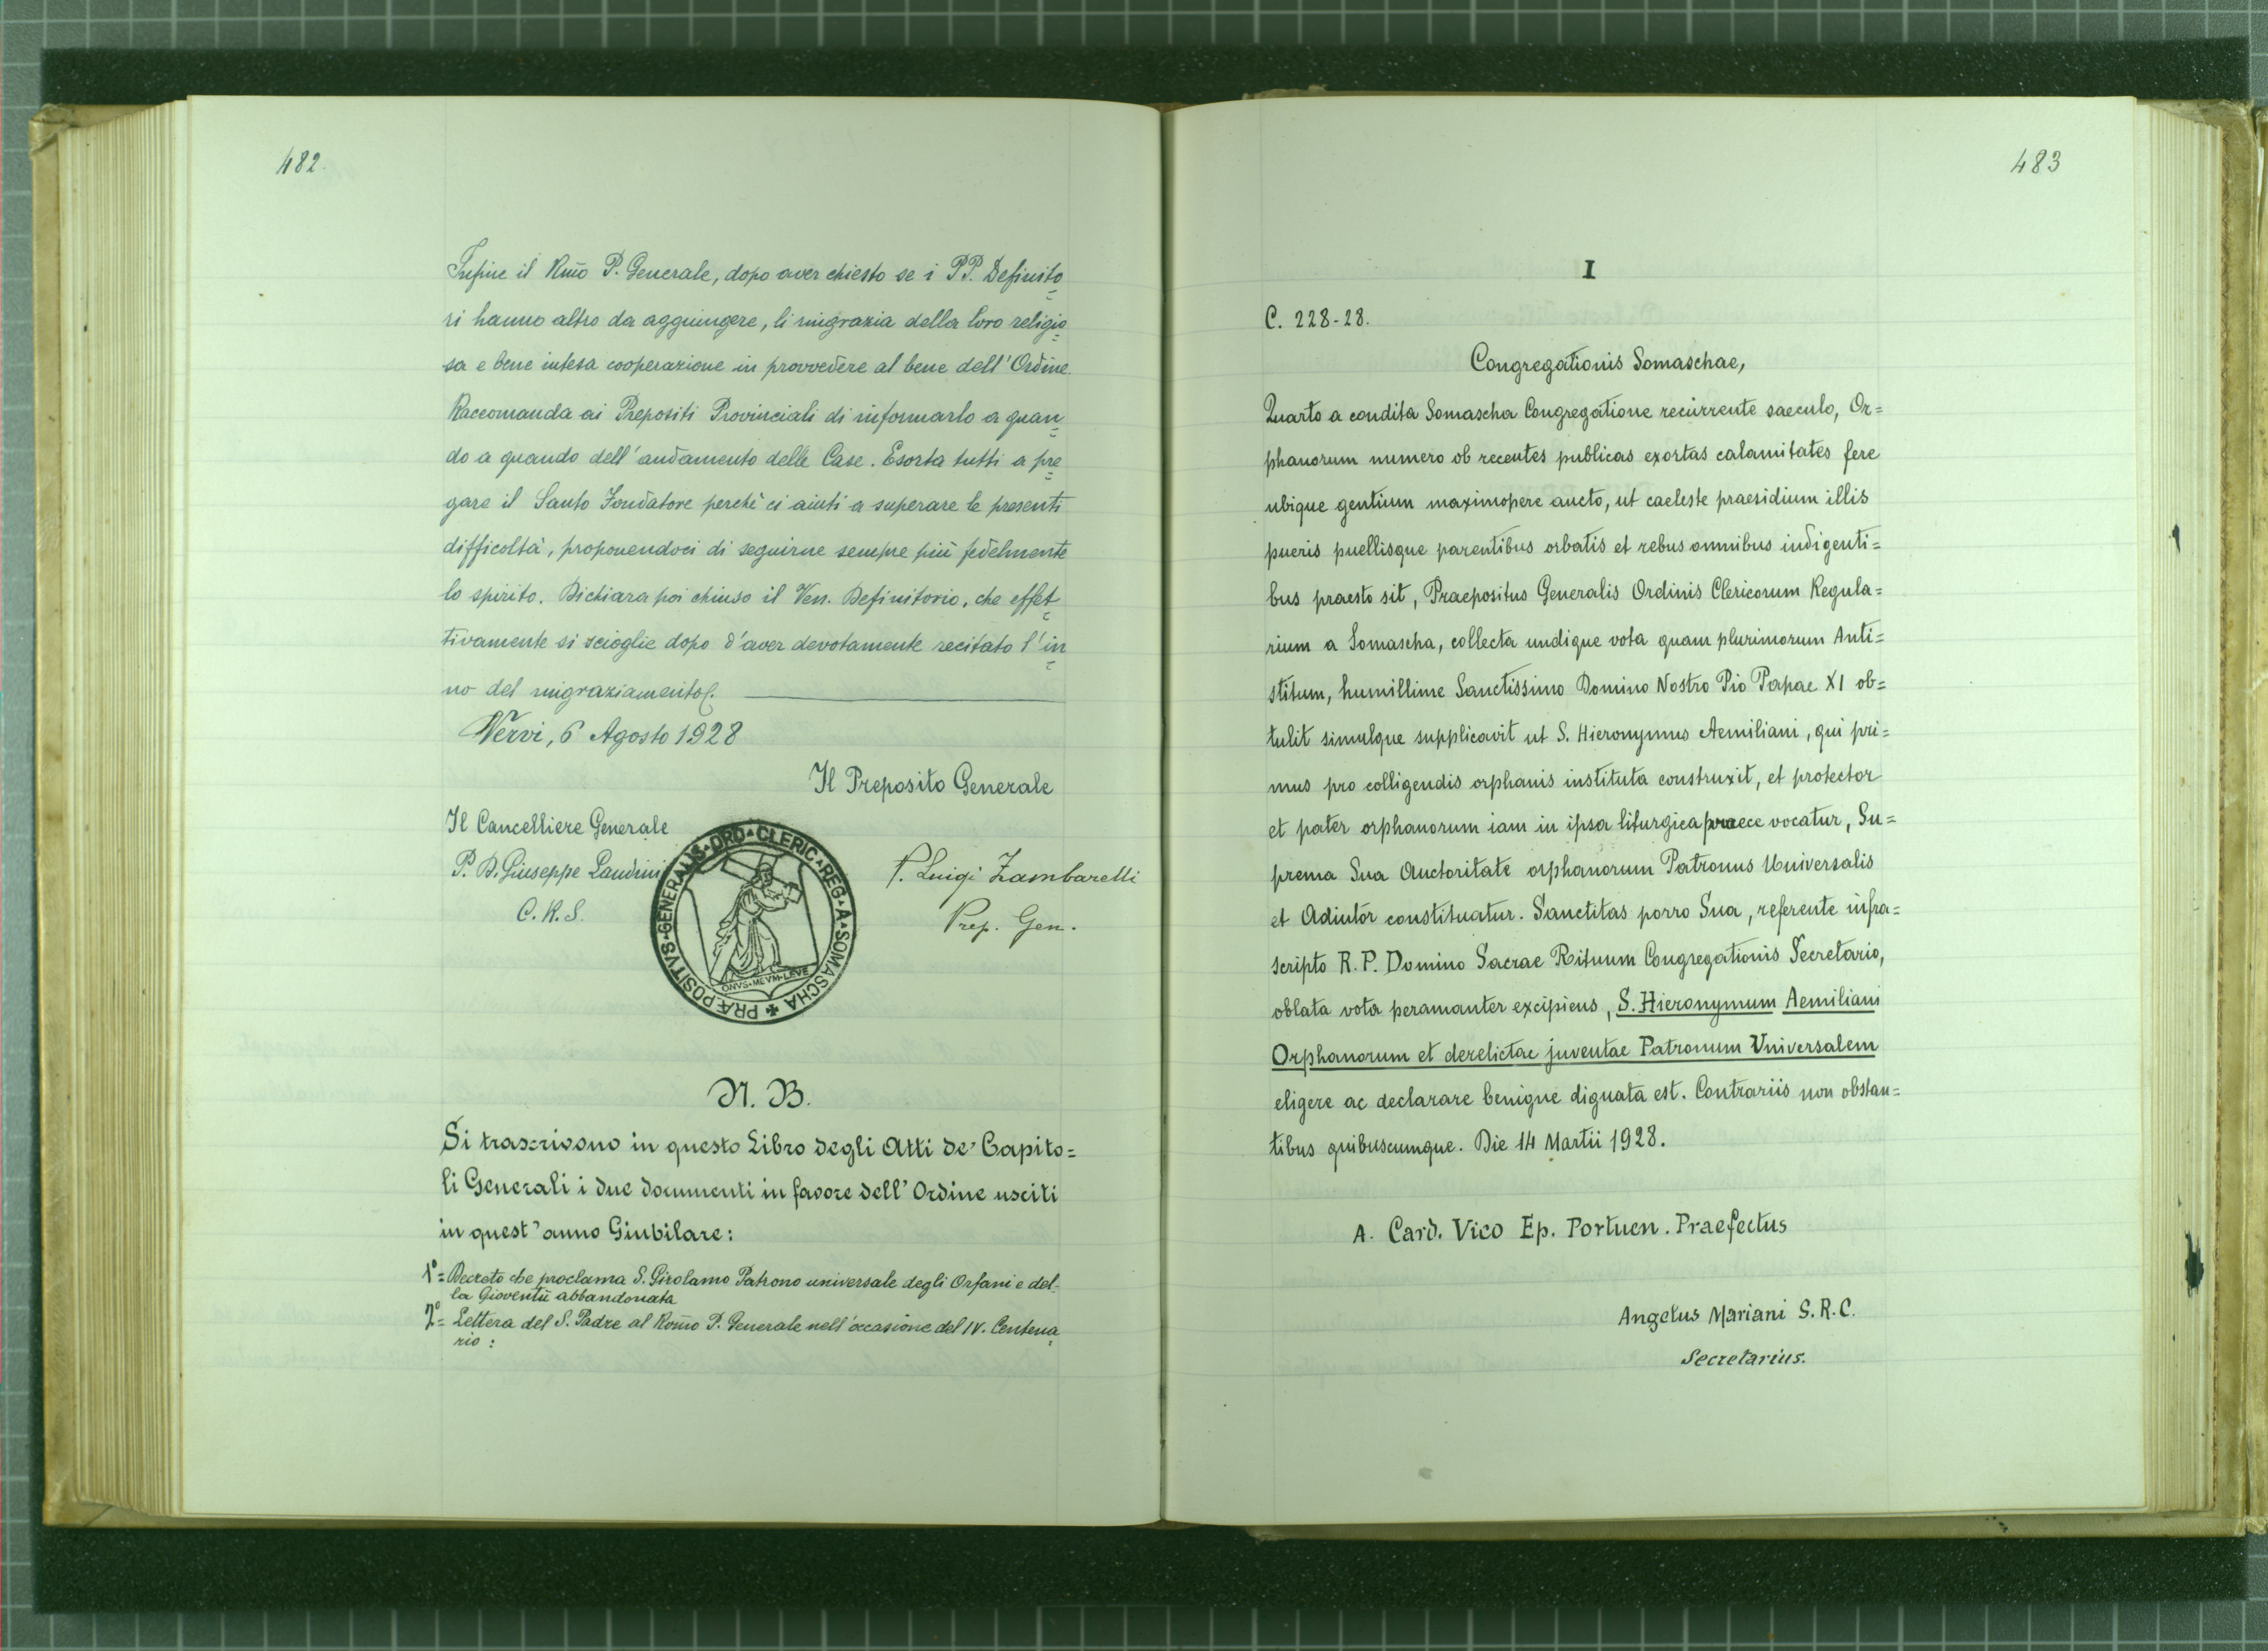 482.
Infine il Rm̃o P. Generale, dopo aver chiesto se i PP. Definito=
ri hanno altro da aggiungere, li ringrazia della loro religio=
sa e bene intesa cooperazione in provvedere al bene dell'Ordine.
Raccomanda ai Prepositi Provinciali di informarlo a quan=
do a quando dell'andamento delle Case. Esorta tutti a pre=
gare il Santo Fondatore perchè ci aiuti a superare le presenti
difficoltà, proponendoci di seguirne sempre più fedelmente
lo spirito. Dichiara poi chiuso il Ven. Definitorio, che effet=
tivamente si scioglie dopo d'aver devotamente recitato l'in=
no del ringraziamento.
Nervi, 6 Agosto 1928
Il Preposito Generale
Il Cancelliere Generale
P. D. Giuseppe Landini
C. R. S.
P. Luigi Zambarelli
Prep. Gen.
PRÆPOSITVS·GENERALIS·ORD·CLERIC·REG·A·SOMASCHA
ONVS·MEVM·LEVE
N. B.
Si trascrivono in questo Libro degli Atti de' Capito=
li Generali i due documenti in favore dell'Ordine usciti
in quest'anno Giubilare:
1°= Decreto che proclama S. Girolamo Patrono universale degli Orfani e del-
la Gioventù abbandonata
2°= Lettera del S. Padre al Rom̃o P. Generale nell'occasione del IV. Centena=
rio:
483
I
C. 228-28.
Congregationis Somaschae,
Quarto a condita Somascha Congregatione recurrente saeculo, Or=
phanorum numero ob recentes publicas exortas calamitates fere
ubique gentium maximopere aucto, ut caeleste praesidium illis
pueris puellisque parentibus orbatis et rebus omnibus indigenti=
bus praesto sit, Praepositus Generalis Ordinis Clericorum Regula=
rium a Somascha, collecta undique vota quam plurimorum Anti=
stitum, humillime Sanctissimo Domino Nostro Pio Papae XI ob=
tulit simulque supplicavit ut S. Hieronymus Aemiliani, qui pri=
mus pro colligendis orphanis instituta construxit, et protector
et pater orphanorum iam in ipsa liturgica praece vocatur, Su=
prema Sua Auctoritate orphanorum Patronus Universalis
et Adiutor constituatur. Sanctitas porro Sua, referente infra=
scripto R. P. Domino Sacrae Rituum Congregationis Secretario,
oblata vota peramanter excipiens, S. Hieronymum Aemiliani
Orphanorum et derelictae juventae Patronum Universalem
eligere ac declarare benigne dignata est. Contrariis non obstan=
tibus quibuscumque. Die 14 Martii 1928.
A. Card. Vico Ep. Portuen. Praefectus
Angelus Mariani S. R. C.
Secretarius.